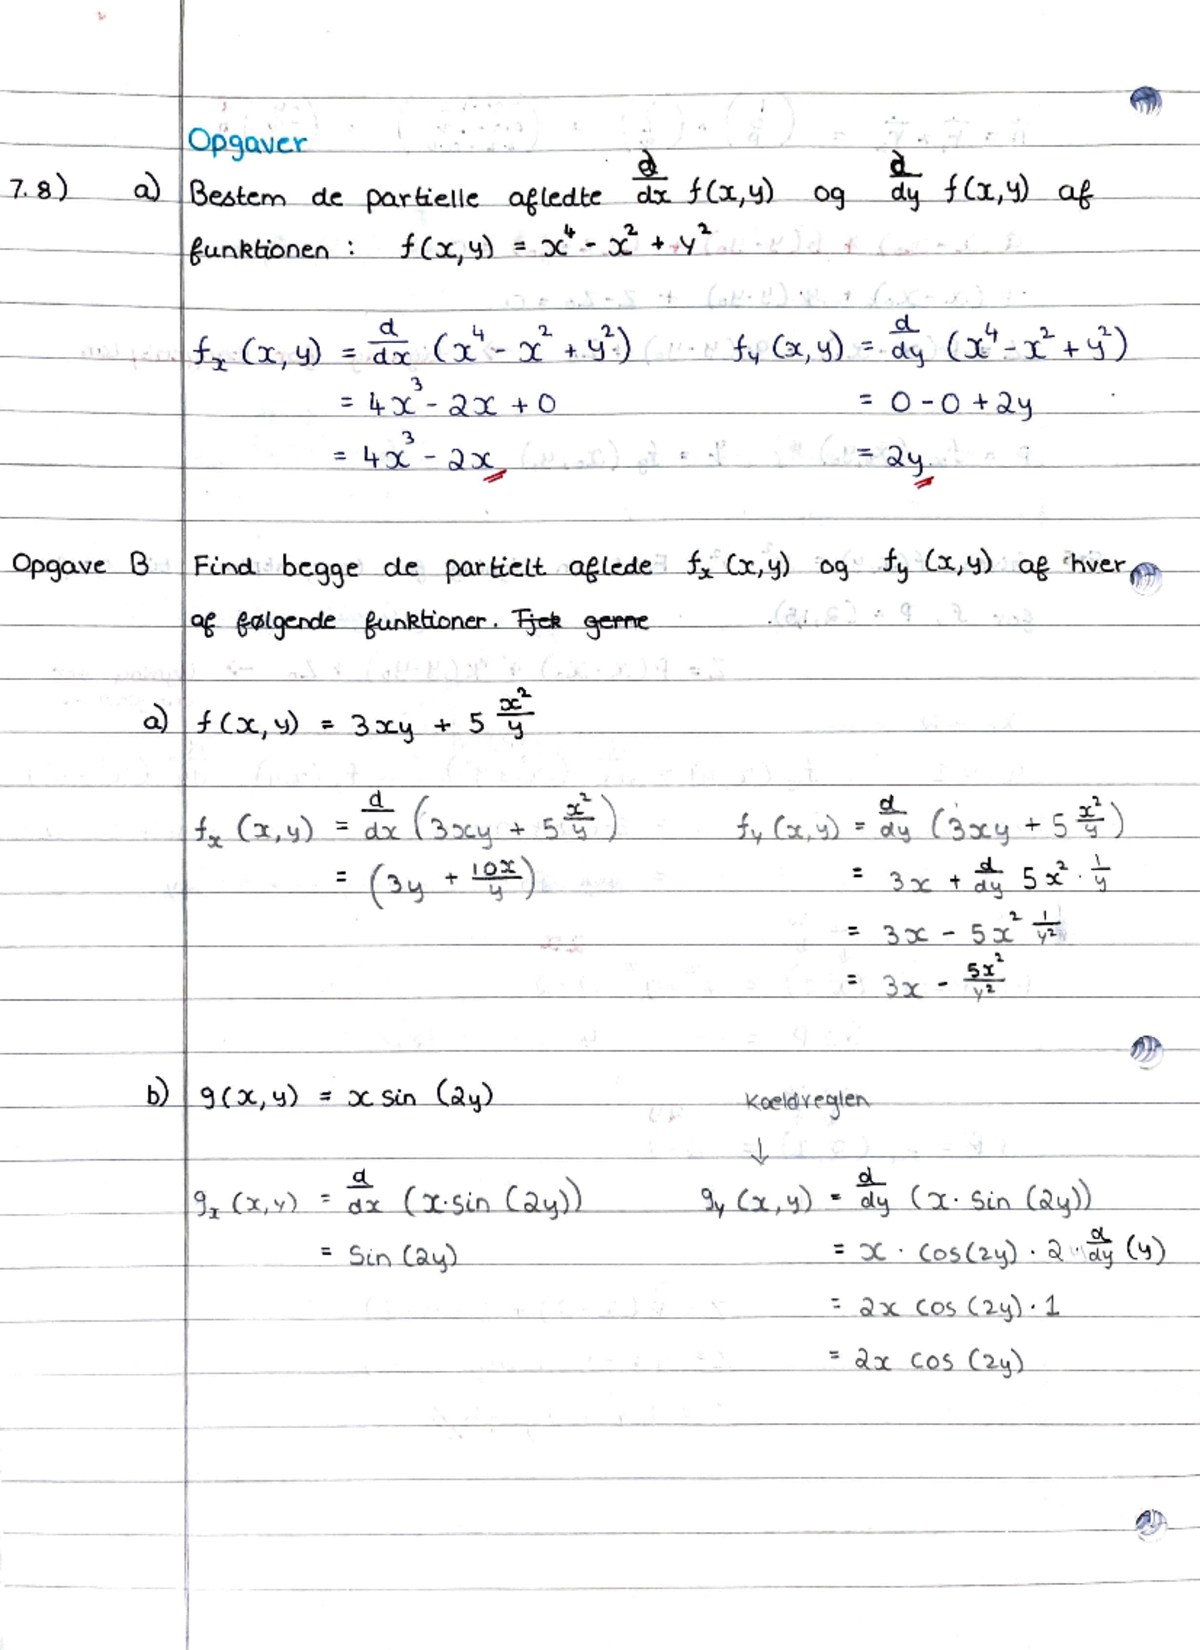 Opgaver
7.8) a) Bestem de partielle afledte d/dx f(x,y) og d/dy f(x,y) af
funktionen : f(x,y) = x⁴ - x² + y²
fx (x,y) = d/dx (x⁴ - x² + y²) fy (x,y) = d/dy (x⁴ - x² + y²)
= 4x³ - 2x + 0 = 0 - 0 + 2y
= 4x³ - 2x = 2y
Opgave B Find begge de partielt aflede fx (x,y) og fy (x,y) af hver
af følgende funktioner. Tjek gerne
a) f(x,y) = 3xy + 5 x²/y
fx (x,y) = d/dx (3xy + 5 x²/y) fy (x,y) = d/dy (3xy + 5 x²/y)
= (3y + 10x/y) = 3x + d/dy 5x² · 1/y
= 3x - 5x² 1/y²
= 3x - 5x²/y²
b) g(x,y) = x sin (2y) Kædereglen
↓
gx (x,y) = d/dx (x·sin (2y)) gy (x,y) = d/dy (x· sin (2y))
= Sin (2y) = x · cos(2y) · 2 · d/dy (y)
= 2x cos (2y) · 1
= 2x cos (2y)